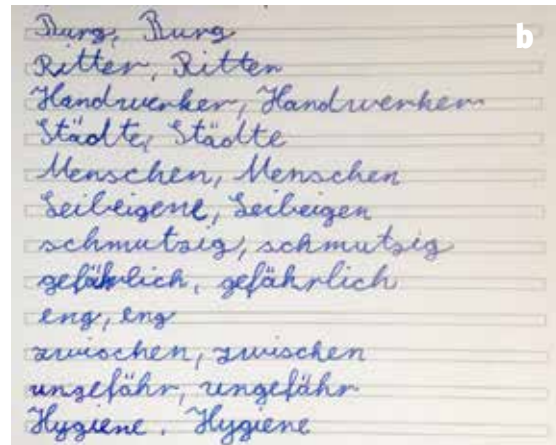 b
Burg, Burg
Ritter, Ritter
Handwerker, Handwerker
Städte, Städte
Menschen, Menschen
Leibeigene, Leibeigen
schmutzig, schmutzig
gefährlich, gefährlich
eng, eng
zwischen, zwischen
ungefähr, ungefähr
Hygiene, Hygiene